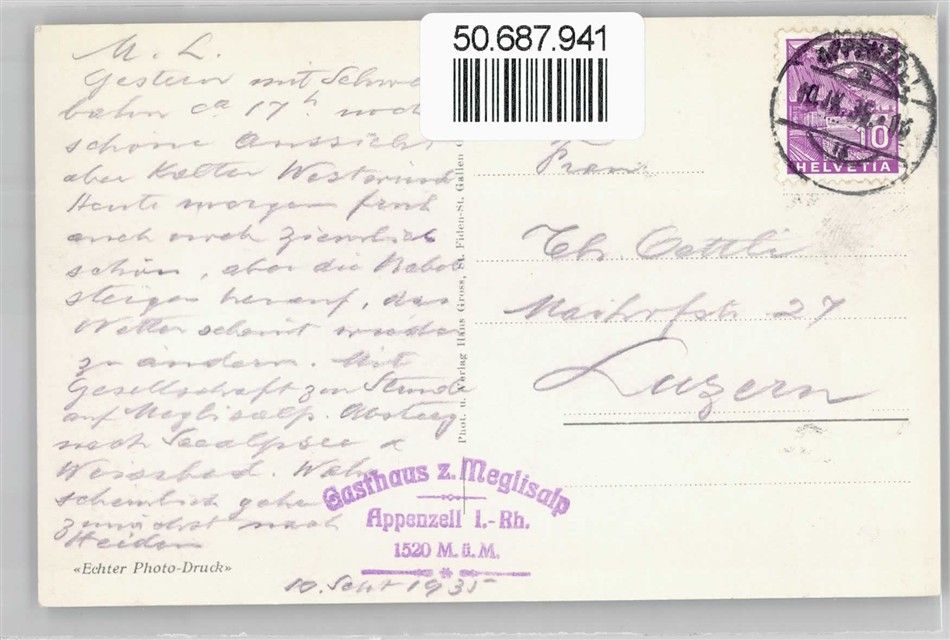 M. L.
Gestern mit Schwe
bahn ca 17h noch
schöne Aussicht
aber kalter Westwind
Heute morgen früh
auch noch ziemlich
schön, aber die Nebel
steigen herauf, das
Wetter scheint wieder
zu ändern. Mit
Gesellschaft zur Stunde
auf Meglisalp. Abstieg
nach Seealpsee &
Weissbad. Wahr
scheinlich gehen
zunächst nach
Heiden
«Echter Photo-Druck»
50.687.941
Phot. u. Verlag Hans Gross, St. Fiden-St. Gallen
APPENZELL
10.IX.35
10
HELVETIA
Frau
Th. Oettli
Maihofstr 27
Luzern
Gasthaus z. Meglisalp
Appenzell I.-Rh.
1520 M. ü. M.
10. Sept 1935